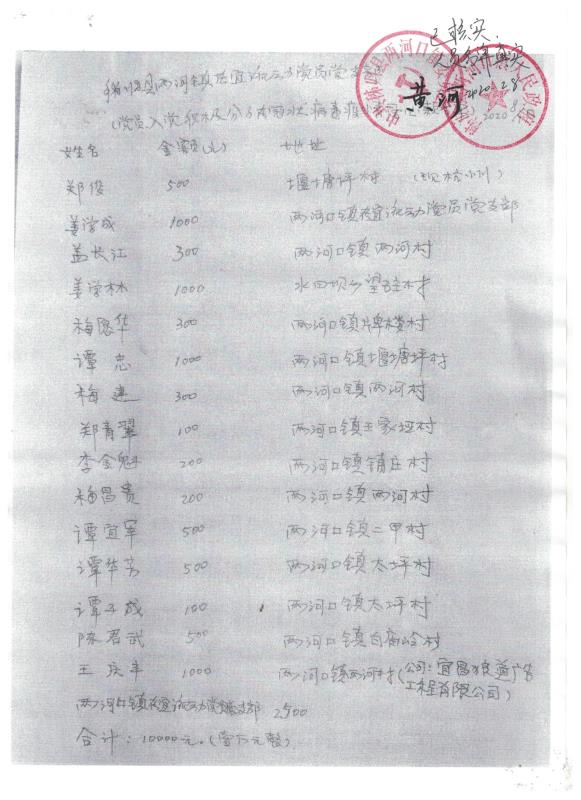 已核实.
人员名单真实
黄河 2020.2.8
秭归县两河口镇在宜流动党员党支部
(党员、入党积极分子为冠状病毒疫情
姓名 金额(元) 地址
郑俊 500 堰塘坪村
姜学成 1000 两河口镇在宜流动党员党支部
孟长江 300 两河口镇两河村
姜学林 1000 水田坝乡望柱村
梅愿华 300 两河口镇牌楼村
谭忠 1000 两河口镇堰塘坪村
梅建 300 两河口镇两河村
郑青翠 100 两河口镇王家坪村
李金魁 200 两河口镇镇庄村
梅昌贵 200 两河口镇两河村
谭宜军 500 两河口镇二甲村
谭华芳 500 两河口镇太坪村
谭子成 100 两河口镇太坪村
陈君武 500 两河口镇白庙岭村
王庆丰 1000 两河口镇两河村(公司:宜昌狼道广告
工程有限公司)
两河口镇在宜流动党员党支部 2500
合计:10000元.(壹万元整)